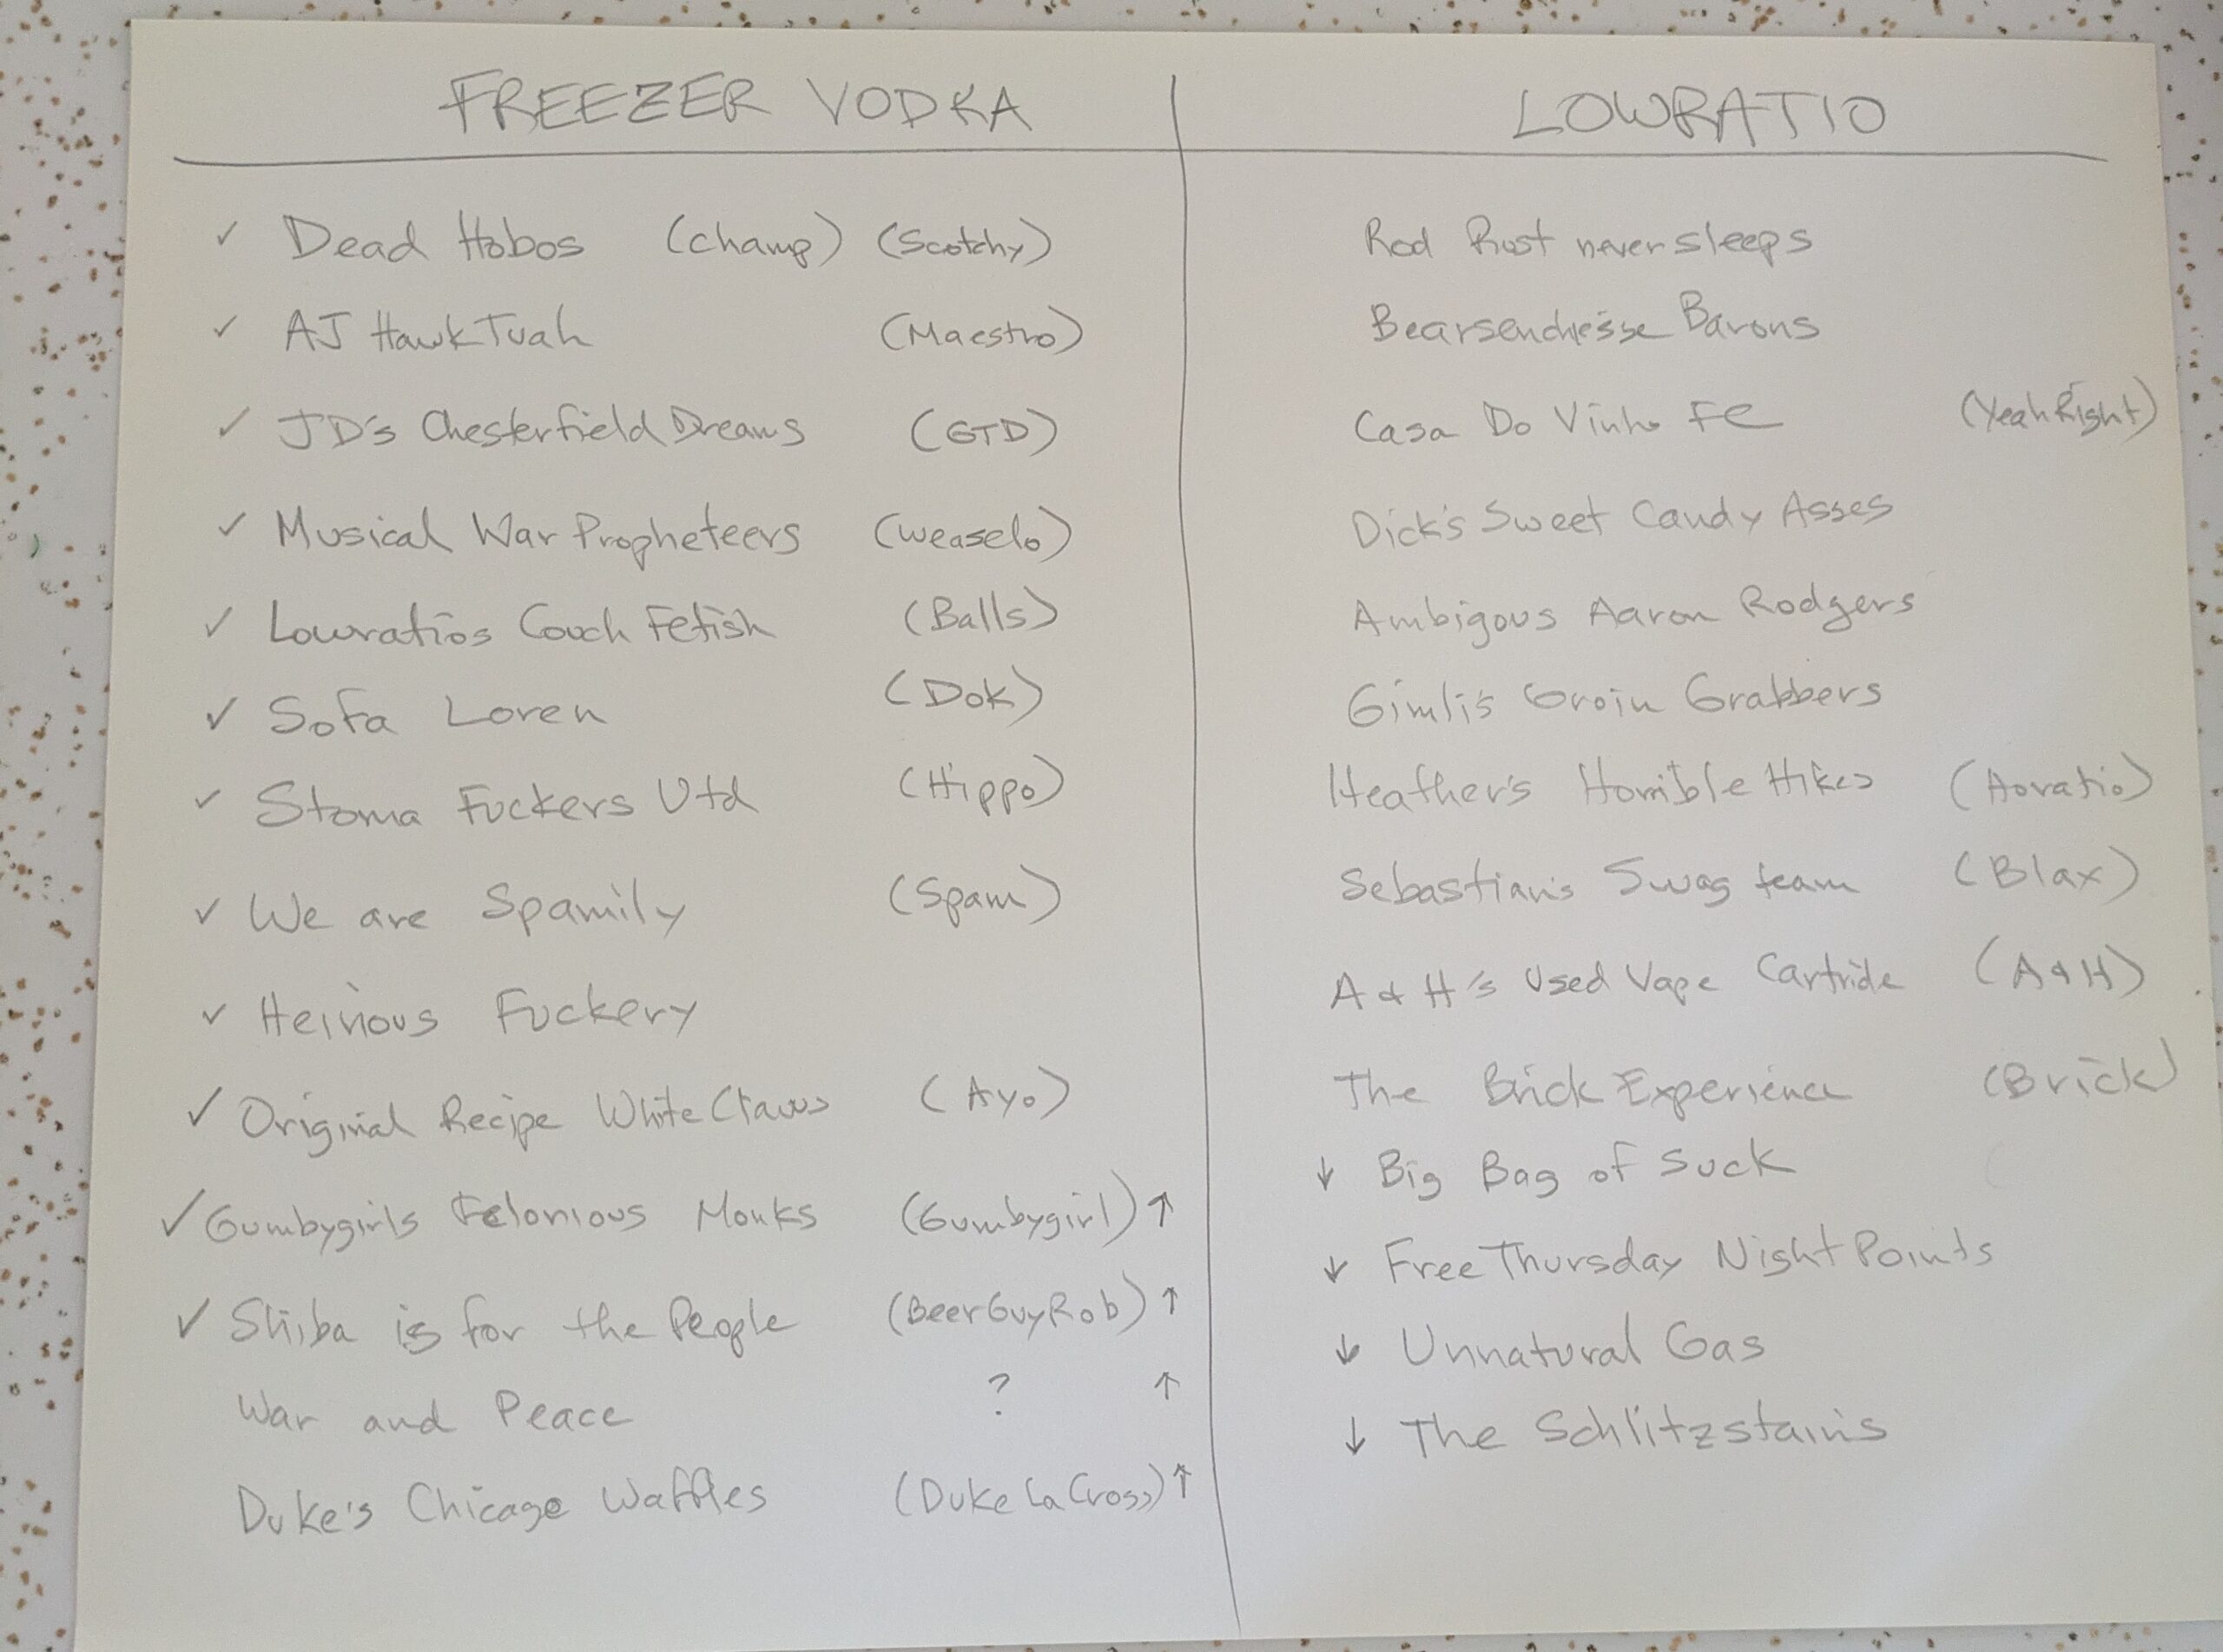 FREEZER VODKA
✓ Dead Hobos (Champ) (Scotchy)
✓ AJ Hawk Tuah (Maestro)
✓ JD's Chesterfield Dreams (GTD)
✓ Musical War Propheteers (Weaselo)
✓ Lowratios Couch Fetish (Balls)
✓ Sofa Loren (Dok)
✓ Stoma Fuckers Utd (Hippo)
✓ We are Spamily (Spam)
✓ Heinous Fuckery
✓ Original Recipe White Claws (Ayo)
✓ Gumbygirls Felonious Monks (Gumbygirl) ↑
✓ Shiba is for the People (BeerGuyRob) ↑
War and Peace ? ↑
Duke's Chicago Waffles (Duke LaCross) ↑
LOWRATIO
Rod Rust never sleeps
Barons
Casa Do Vinho FC (Yeah Right)
Dick's Sweet Candy Asses
Ambigous Aaron Rodgers
Gimli's Groin Grabbers
Heather's Horrible Hikes (Horatio)
Sebastian's Swag team (Blax)
A & H's Used Vape Cartride (A & H)
The Brick Experience (Brick)
↓ Big Bag of Suck
↓ Free Thursday Night Points
↓ Unnatural Gas
↓ The Schlitzstains